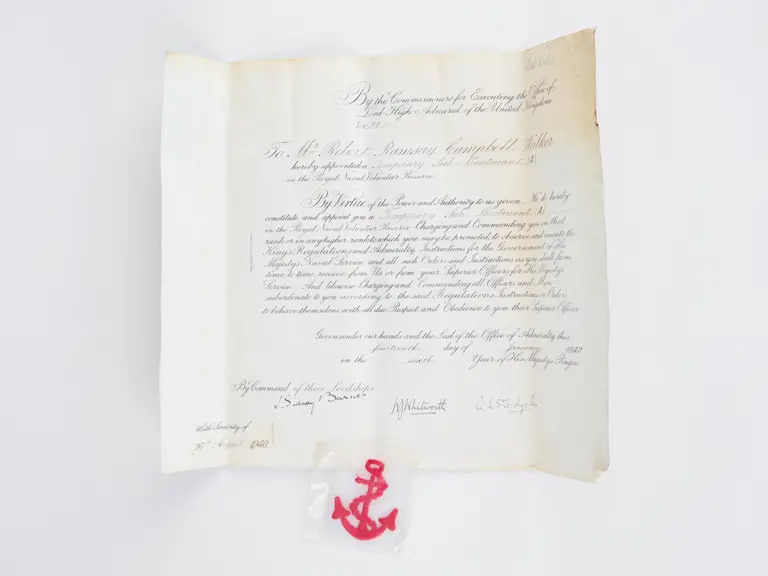 By the Commissioners for Executing the Office of
Lord High Admiral of the United Kingdom
To Mr. Robert Ramsay Campbell Walker
hereby appointed a Temporary Sub Lieutenant (A)
in the Royal Naval Volunteer Reserve
By Virtue of the Power and Authority to us given We do hereby
constitute and appoint you a Temporary Sub Lieutenant (A)
in the Royal Naval Volunteer Reserve Charging and Commanding you in that
rank or in any higher rank to which you may be promoted, to observe and execute the
King's Regulations and Admiralty Instructions for the Government of His
Majesty's Naval Service and all such Orders and Instructions as you shall from
time to time receive from Us or from your Superior Officers for His Majesty's
Service. And likewise Charging and Commanding all Officers and Men
subordinate to you according to the said Regulations Instructions or Orders
to behave themselves with all due Respect and Obedience to you their Superior Officer.
Given under our hands and the Seal of the Office of Admiralty this
fourteenth day of January 1942
in the sixth Year of His Majesty's Reign
By Command of their Lordships
J. Sidney Barnes
With Seniority of
August 1940